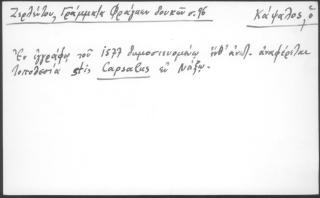 Ζερλέντου, Γράμματα Φράγκων δουκῶν σ. 96
Κάψαλος, ὁ
Ἐν ἐγγράφῳ τοῦ 1577 δημοσιευομένῳ ὑπ' ἀναφέρεται
τοποθεσία stis Capsalus ἐν Νάξῳ.